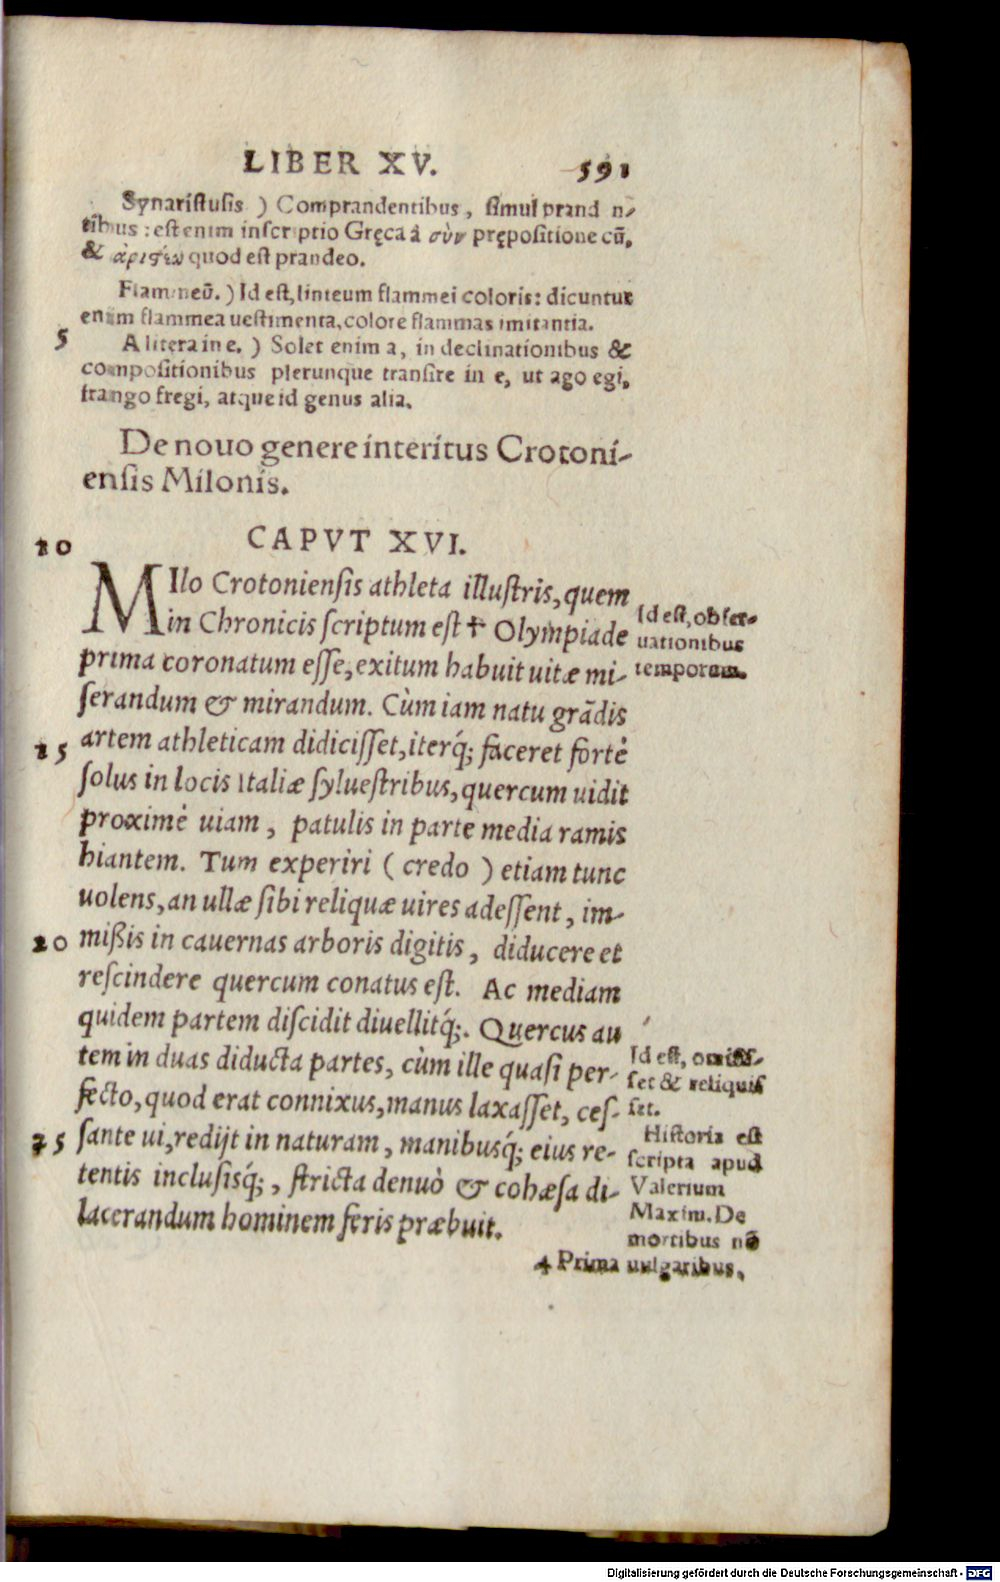 LIBER XV. 591
Synaristusis ) Comprandentibus, simul prand n-
tibus: est enim inscriptio Gręca â σὺν prępositione cū,
& ἀριστάω quod est prandeo.
Flammeū. ) Id est, linteum flammei coloris: dicuntur
enim flammea uestimenta, colore flammas imitantia.
5
A litera in e. ) Solet enim a, in declinationibus &
compositionibus plerunque transire in e, ut ago egi,
frango fregi, atque id genus alia.
De nouo genere interitus Crotoni-
ensis Milonis.
10
CAPVT XVI.
MIlo Crotoniensis athleta illustris, quem
in Chronicis scriptum est ✝ Olympiade
prima coronatum esse, exitum habuit uitæ mi-
serandum & mirandum. Cùm iam natu grādis
15
artem athleticam didicisset, iterq́; faceret fortè
solus in locis Italiæ syluestribus, quercum uidit
proximè uiam, patulis in parte media ramis
hiantem. Tum experiri ( credo ) etiam tunc
uolens, an ullæ sibi reliquæ uires adessent, im-
20
mißis in cauernas arboris digitis, diducere et
rescindere quercum conatus est. Ac mediam
quidem partem discidit diuellitq́;. Quercus au
tem in duas diducta partes, cùm ille quasi per-
fecto, quod erat connixus, manus laxasset, ces-
25
sante ui, redijt in naturam, manibusq́; eius re-
tentis inclusisq́;, stricta denuò & cohæsa di-
lacerandum hominem feris præbuit.
4 Prima
Id est, obser-
uationibus
temporum.
Id est, omisis-
set & reliquis
set.
Historia est
scripta apud
Valerium
Maxim. De
mortibus nō
uulgaribus,
Digitalisierung gefördert durch die Deutsche Forschungsgemeinschaft - DFG